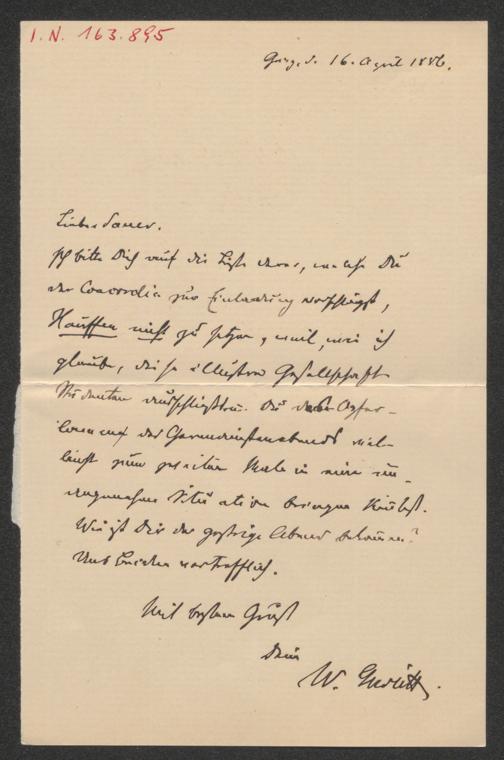 I.N. 163.895
Graz, d. 16. April 1886.
Lieber Sauer.
Ich bitte Dich auf die Liste derer, welche Du
der Concordia zur Einladung vorschlägst,
Hauffen nicht zu setzen, weil, wie ich
glaube, diese illustre Gesellschaft
Studenten ausschließt. Du
der Germanistenabends viel-
leicht zum zweiten Male in eine un-
angenehme Situation bringen könntest.
Wie ist Dir der gestrige Abend bekommen?
Uns beiden vortrefflich.
Mit bestem Gruß
Dein
W. Gurlitt.